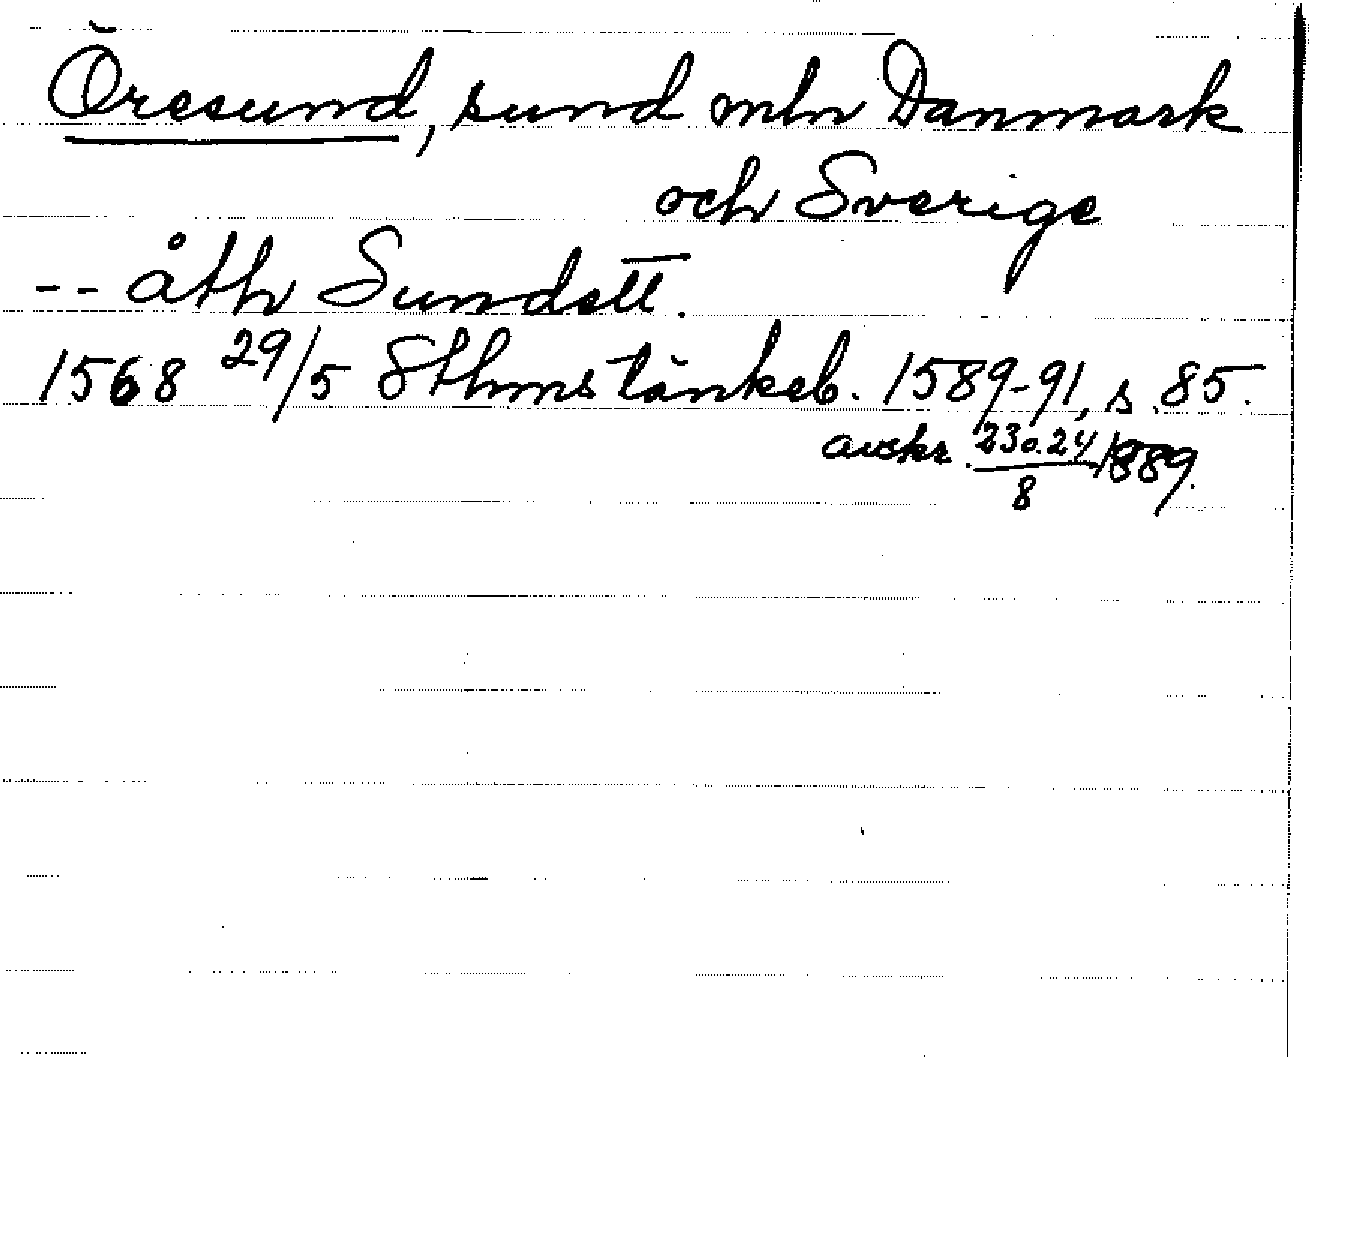 Öresund, sund mln Danmark
och Sverige
-- åth Sundett.
1568 29/5 Sthms tänkeb. 1589-91, s. 85.
avskr. 23 o. 24/8 1589.